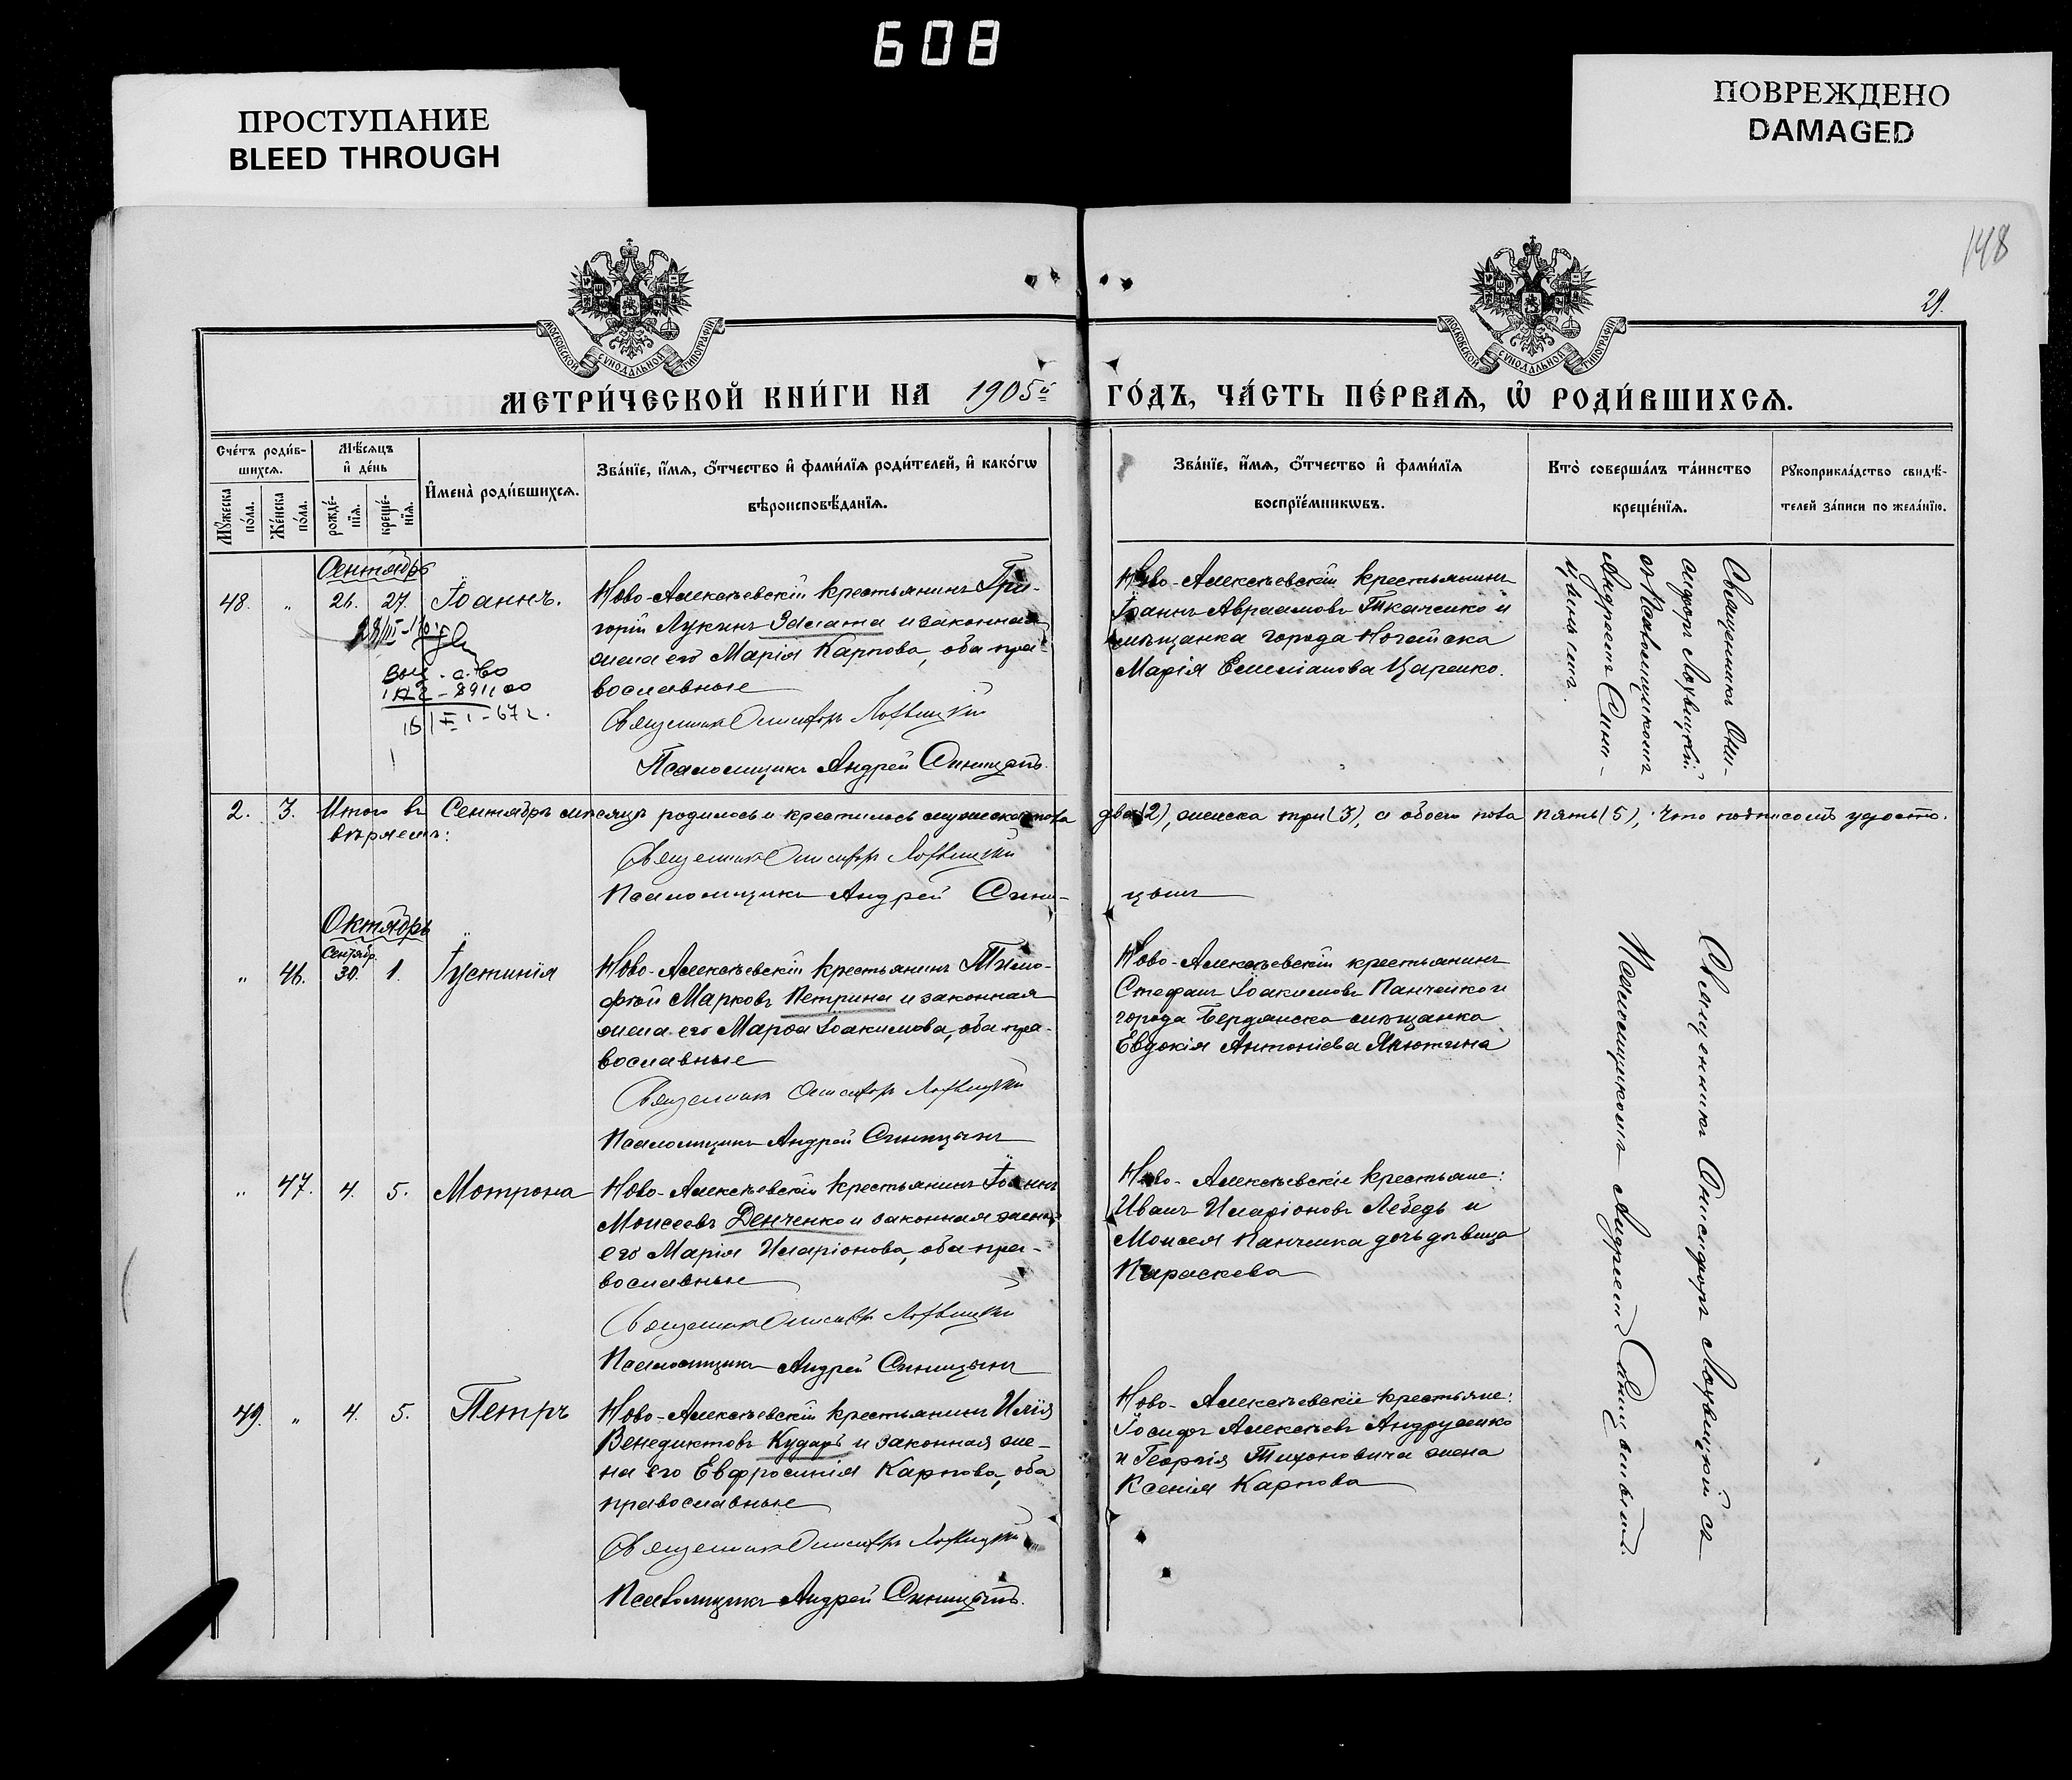 608
ПРОСТУПАНИЕ
BLEED THROUGH
ПОВРЕЖДЕНО
DAMAGED
148
29.
МОСКОВСКОЙ СУНОДАЛЬНОЙ ТИПОГРАФІИ
МОСКОВСКОЙ СУНОДАЛЬНОЙ ТИПОГРАФІИ
МЕТРИ́ЧЕСКОЙ КНИ́ГИ НА 1905й
ГО́ДЪ, ЧА́СТЬ ПЕ́РВАѦ, Ѡ҆ РОДИ́ВШИХСѦ.
Сче́тъ роди́в-
шихсѧ.
Мѣ́сѧцъ
и҆ де́нь
Мꙋ́жеска
по́ла.
Же́нска
по́ла.
рожде́-
нїѧ.
креще́-
нїѧ.
И҆мена̀ роди́вшихсѧ.
Зва́нїе, и҆́мѧ, ѻ҆́тчество и҆ фами́лїѧ роди́телей, и҆ како́гѡ
вѣроисповѣ́данїѧ.
Зва́нїе, и҆́мѧ, ѻ҆́тчество и҆ фами́лїѧ
воспрїе́мникѡвъ.
Кто̀ соверша́лъ та́инство
креще́нїѧ.
Рꙋкоприкла́дство свидѣ́-
телей за́писи по жела́нїю.
Сентябрь
48. „ 26. 27. Іоаннъ.
Ново-Алексѣевскій крестьянинъ Гри-
горій Лукинъ Заслата и законная
жена его Марія Карпова, оба пра-
вославные
Священникъ Онисифоръ Лохвицкій
Псаломщикъ Андрей Синицынъ.
Ново-Алексѣевскій крестьянинъ
Іоаннъ Авраамовъ Ткаченко и
мѣщанка города Ногайска
Марія Емеліанова Царенко.
Священникъ Они-
сифоръ Лохвицкій
съ Псаломщикомъ
Андреемъ Сини-
цынымъ.
2. 3. Итого въ Сентябрѣ мѣсяцѣ родилось и крестилось мужеска пола два (2), женска три (3), а обоего пола пять (5), Что подписомъ удосто-
вѣряемъ:
Священникъ Онисифоръ Лохвицкій
Псаломщикъ Андрей Сини-
цынъ
Октябрь
Сентябр.
„ 46. 30. 1. Іустинія
Ново-Алексѣевскій крестьянинъ Тимо-
фей Марковъ Петрина и законная
жена его Марфа Іоакимова, оба пра-
вославные
Священникъ Онисифоръ Лохвицкій
Псаломщикъ Андрей Синицынъ
Ново-Алексѣевскій крестьянинъ
Стефанъ Іоакимовъ Панченко и
города Бердянска мѣщанка
Евдокія Антоніева
„ 47. 4. 5. Мотрона
Ново-Алексѣевскій крестьянинъ Іоаннъ
Моисеевъ Денченко и законная жена
его Марія Иларіонова, оба пра-
вославные
Священникъ Онисифоръ Лохвицкій
Псаломщикъ Андрей Синицынъ
Ново-Алексѣевскіе крестьяне:
Иванъ Иларіоновъ Лебедь и
Моисея Панченка дочь дѣвица
Параскева
49. „ 4. 5. Петръ
Ново-Алексѣевскій крестьянинъ Илія
Венедиктовъ Кударь и законная же-
на его Евфросинія Карпова, оба
православные
Священникъ Онисифоръ Лохвицкій
Псаломщикъ Андрей Синицынъ.
Ново-Алексѣевскіе крестьяне:
Іосифъ Алексѣевъ Андрущенко
и Георгія Тихоновича жена
Ксенія Карпова
Священникъ Онисифоръ Лохвицкій съ
Псаломщикомъ Андреемъ Синицынымъ.